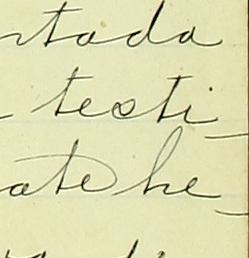 ntada
testi_
ate he_